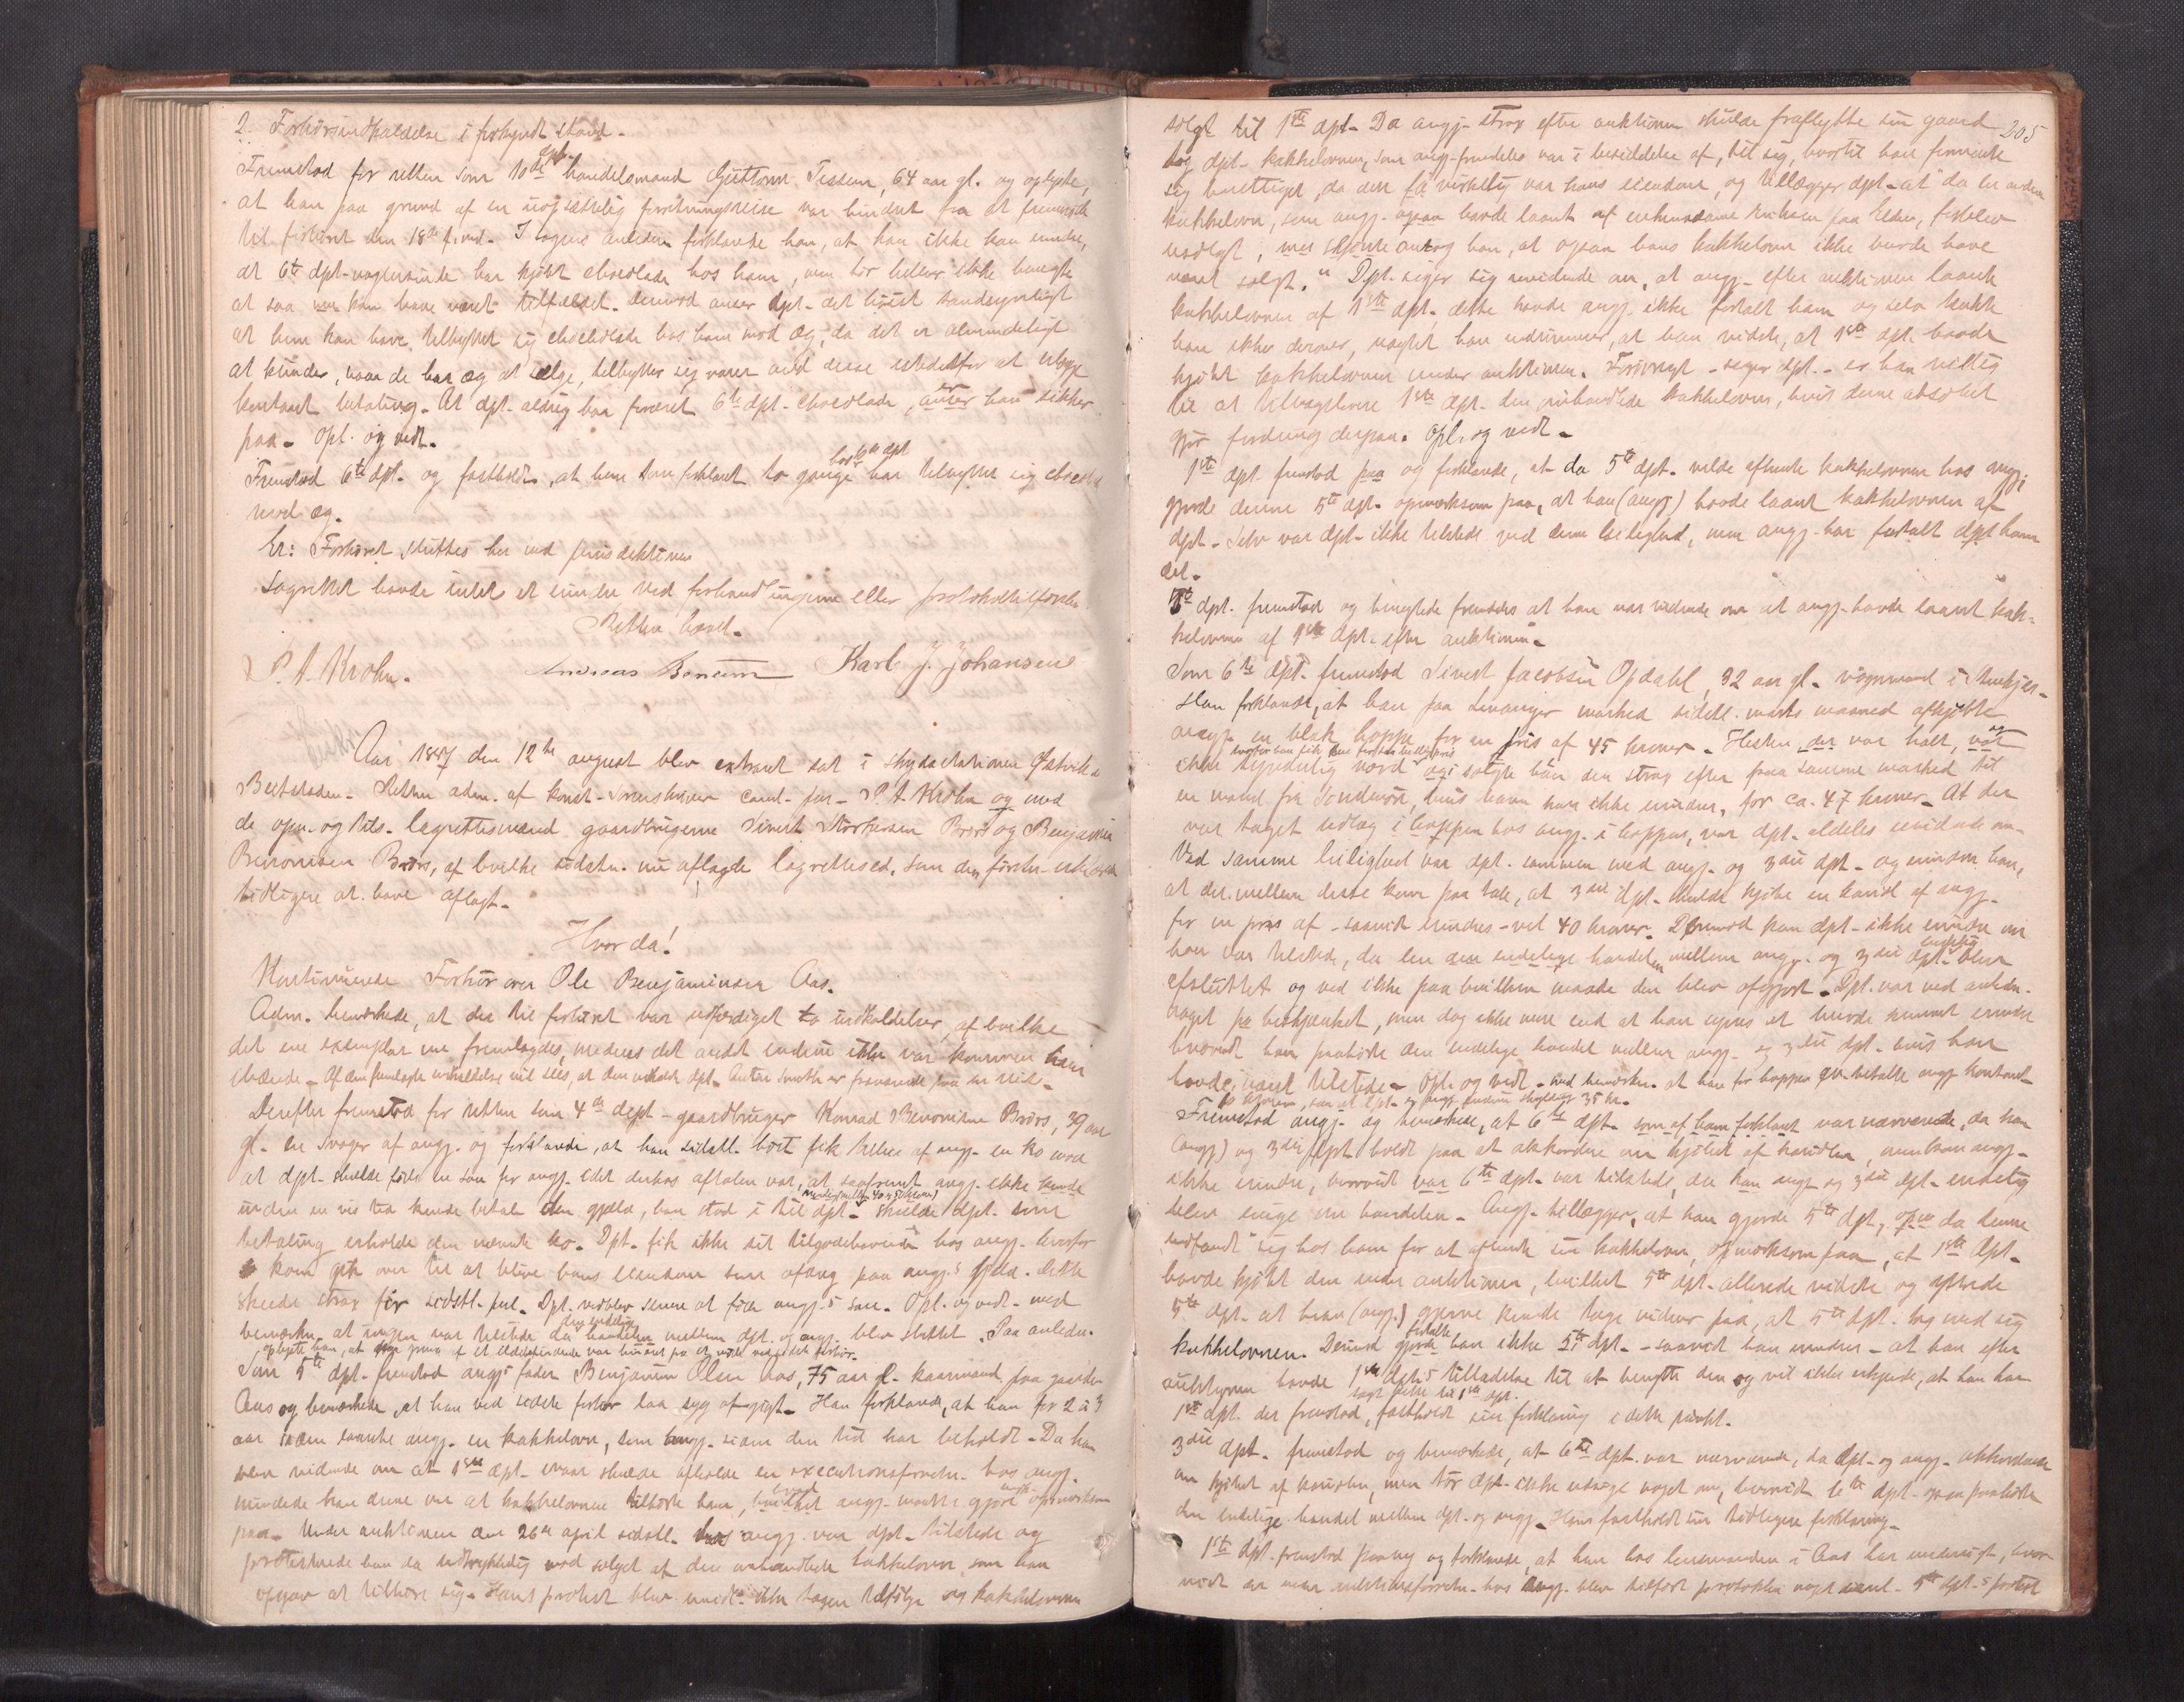 2. Forhørsindkaldelse i forkyndt stand.
Fremstod for retten som 10de dpt. handelsmand Guttorm Tessem, 64 aar gl. og oplyste,
at han paa grund af en uopsættelig forretningsreise var hindret fra at fremmøde
til forhøret den 18de f. md. I sagens anledn. forklarede han, at han ikke kan mindes,
at 6te dpt. nogensinde har kjøbt chocolade hos ham, men tør heller ikke benegte
at saa kan have været tilfældet. Derimod anser dpt. det høist sandsynligt
at hun kan have tilbyttet sig chocolade hos ham mod æg, da det er almindeligt
at kunder, naar de har æg at sælge, tilbytter sig varer mod disse istedetfor at erlægge
kontant betaling. At dpt. aldrig har foræret 6te dpt. chocolade, er han sikker
paa. Opl. og vedt.
Fremstod 6te dpt. og fastholdt, at hun som forklaret to gange hos 10de dpt har tilbyttet sig chocolade
mod æg.
Er: Forhøret sluttes her ved jurisdiktionen
Lagrettet havde intet at erindre ved forhandlingerne eller protokoltilførslen
Retten hævet.
P. A. Krohn. Andreas Karl J. Johansen
Aar 1897 den 12te august blev extraret sat i skydsstationen Østvik i
Beitstaden. Retten adm. af konst. sorenskriver cand. jur. P. A. Krohn og med
de opn. og tils. lagrettesmænd gaardbrugerne Sivert Brørs og Benjamin
Benonisen Brørs, af hvilke sidstn. nu aflagde lagrettesed, som den førstn.
tidligere at have aflagt.
Hvor da!
Kontinueredes Forhør over Ole Benjaminsen Aas.
Adm. bemærkede, at der til forhøret var udfærdiget to indkaldelser, af hvilke
det ene exemplar nu fremlagdes, medens det andet endnu ikke var kommen
ihænde. Af den fremlagte indkaldelse vil sees, at den indkaldte dpt. Anton er fraværende paa en reise.
Derefter fremstod for retten som 4de dept. gaardbruger Konrad Benonisen Brørs, 39 aar
gl. en svoger af angj. og forklarede, at han sidstl. høst fik tillhus af angj. en ko mod
at dpt. skulde føde en sau for angj. idet derhos aftalen var, at saafremt angj. ikke
inden en vis tid kunde betale den gjæld, han stod i til dpt. skulde dpt. som
betaling erholde den nævnte ko. Dpt. fik ikke sit tilgodehavende hos angj. hvorfor
koen gik over til at blive hans eiendom som afdrag paa angj.s gjæld. Dette
skeede strax før sidstl. jul. Dpt. vedblev senere at føde angj.s sau. Opl. og vedt. med
bemærkn. at ingen var tilstede da den endelige handelen mellem dpt. og angj. blev sluttet. Paa anledn.
oplyste han, at paa grund af et ildebefindende var hindret fra at møde ved sidste forhør.
Som 5te dpt. fremstod angj.s fader Benjamin Olsen Aas, 75 aar gl. kaarmand paa gaarden
Aas og bemærkede, at han ved sidste forhør laa syg af gigt. Han forklarede, at han for 2 à 3
aar siden laante angj. en kakkelovn, som angj. siden den tid har beholdt. Da han
blev vidende om at 1ste dpt. skulde afholde en executionsforretn. hos angj.
mindede han denne om at kakkelovnen tilhørte ham, hvad angj. maatte gjøre opmærksom
paa. Under auktionen den 26de april sidstl. hos angj. var dpt. tilstede og
protesterede han da udtrykkelig mod salget af den omhandlede kakkelovn, som han
opgav at tilhøre sig. Hans protest blev imidl. ikke tagen tilfølge og kakkelovnen
205
solgt til 1ste dpt. Da angj. strax efter auktionen skulde fraflytte sin gaard
tog dpt. kakkelovnen, som angj. fremdeles var i besiddelse af, til sig, hvortil han formente
sig berettiget, da den jo virkelig var hans eiendom, og tillægger dpt. at "da en anden
kakkelovn, som angj. ogsaa havde laant af enkemadame paa Elden, forblev
usolgt, antog han, at ogsaa hans kakkelovn ikke burde have
været solgt." Dpt. siger sig uvidende om, at angj. efter auktionen laante
kakkelovnen af 1ste dpt., dette havde angj. ikke fortalt ham og selv tænkte
han ikke derover, uagtet han indrømmer, at han vidste, at 1ste dpt. havde
kjøbt kakkelovnen under auktionen. Forøvrigt - siger dpt. - er han villig
til at tilbagelevere 1ste dpt. den omhandlede kakkelovn, hvis denne absolut
gjør fordring derpaa. Opl. og vedt.
1ste dpt fremstod paa og forklarede, at da 5te dpt. vilde afhente kakkelovnen hos angj.
gjorde denne 5te dpt. opmærksom paa, at han (angj) havde laant kakkelovnen af
dpt. Selv var dpt. ikke tilstede ved denne leilighed, men angj. har fortalt dpt ham
det.
5te dpt. fremstod og benegtede fremdeles at han var vidende om at angj. havde laant kak-
kelovnen af 1ste dpt. efter auktionen.
Som 6te dpt. fremstod Sivert Jacobsen Opdahl, 32 aar gl. vognmand i Stenkjer.
Han forklarede, at han paa Levanger marked sidstl. marts maaned afkjøbte
angj. en blak hoppe for en pris af 45 kroner. Hesten der var halt, og var
ikke synderlig værd og solgte han den strax efter paa samme marked til
en mand fra Søndmør, hvis navn han ikke erindrer, for ca. 47 kroner. At der
var taget udlæg i hoppen hos angj. i hoppen, var dpt. aldeles uvidende om.
Ved samme leilighed var dpt. sammen med angj. og 3die dpt. og mindes han,
at der mellem disse kom paa tale, at 3die dpt. skulde kjøbe en kariol af angj.
for en pris af - saavidt erindres - vel 40 kroner. Derimod kan dpt. ikke erindre om
han var tilstede, da den endelige handelen mellem angj. og 3die dpt. endelig blev
afsluttet og ved ikke paa hvilken maade den blev afgjort. Dpt. var ved anledn.
noget beskjænket, men dog ikke mere end at han synes at burde kunnet erindre
hvorvidt han paahørte den endelige handel mellem angj. og 3die dpt. hvis han
havde været tilstede. Opl. og vedt. med bemærkn. at han for hoppen betalte angj. kontant
10 kroner, saa at dpt. er angj. endnu skyldig 35 kr.
Fremstod angj. og bemærkede, at 6te dpt. som af ham forklaret var nærværende, da han
(angj) og 3die dpt holdt paa at akkordere om kjøbet af kariolen, men kan angj.
ikke erindre, hvorvidt 6te dpt. var tilstede, da han angj. og 3die dpt. endelig
blev enige om handelen. Angj. tillægger, at han gjorde 5te dpt, da denne
indfandt sig hos ham for at afhente sin kakkelovn, opmærksom paa, at 1ste dpt.
havde kjøbt den under auktionen, hvilket 5te dpt. allerede vidste og
5te dpt. at han (angj.) gjerne kunde tage vidner paa, at 5te dpt. tog med sig
kakkelovnen. Derimod fortalte han ikke 5te dpt. - saavidt han erindrer - at han efter
auktionen havde 1ste dpt.s tilladelse til at benytte den og vil ikke erkjende, at han har
sagt dette til 1ste dpt.
1ste dpt. der fremstod, fastholdt sin forklaring i dette punkt.
3die dpt. fremstod og bemærkede, at 6te dpt. var nærværende, da dpt. og angj. akkorderede
om kjøbet af kariolen, men tør dpt. ikke udsige noget om, hvorvidt 6te dpt. ogsaa paahørte
den endelige handel mellem dpt. og angj. Han fastholdt sin tidligere forklaring.
1ste dpt. fremstod paany og forklarede, at han hos lensmanden i Aas har undersøgt, hvor-
vidt der under auktionsforretn. hos angj. blev tilført protokollen noget 5te dpt.s protest